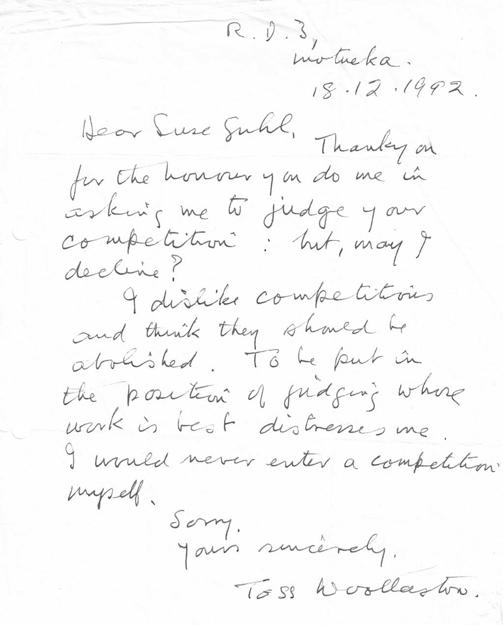 R. D. 3,
Motueka.
18.12.1992.
Dear Suse Guhl,
Thankyou
for the honour you do me in
asking me to judge your
competition : but, may I
decline?
I dislike competitions
and think they should be
abolished. To be put in
the position of judging whose
work is best distresses me.
I would never enter a competition
myself.
Sorry.
Yours sincerely.
Toss Woollaston.